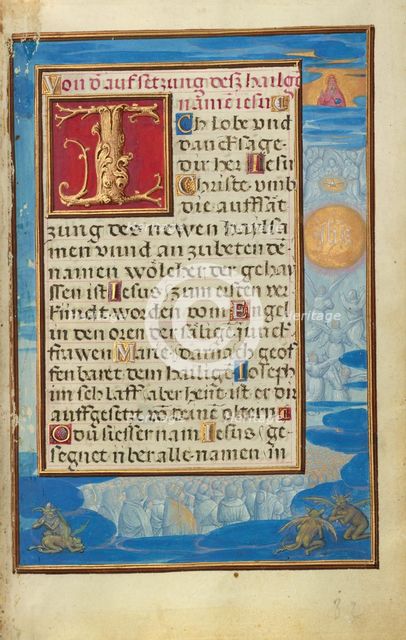 Von d̄ aufsetzung desz hailgē
namē iesu
Ich lobe vnd
dancksage
dir her Iesu
Christe vmb
die auffsat
zung des newen haylsa
men vnnd an zubetendē
namen wölcher der gehay
ssen ist Iesus zum ersten ver
kündt worden vom Engel
in den oren der säligē junck
frawen Marie darnach geof
fenbaret dem hailigē Joseph
im schlaff aber heut ist er dir
auffgesetzt vō deinē öltern
O du siesser nam Iesus ge
segnet n̄ber alle namen in
ihs
heritage
82